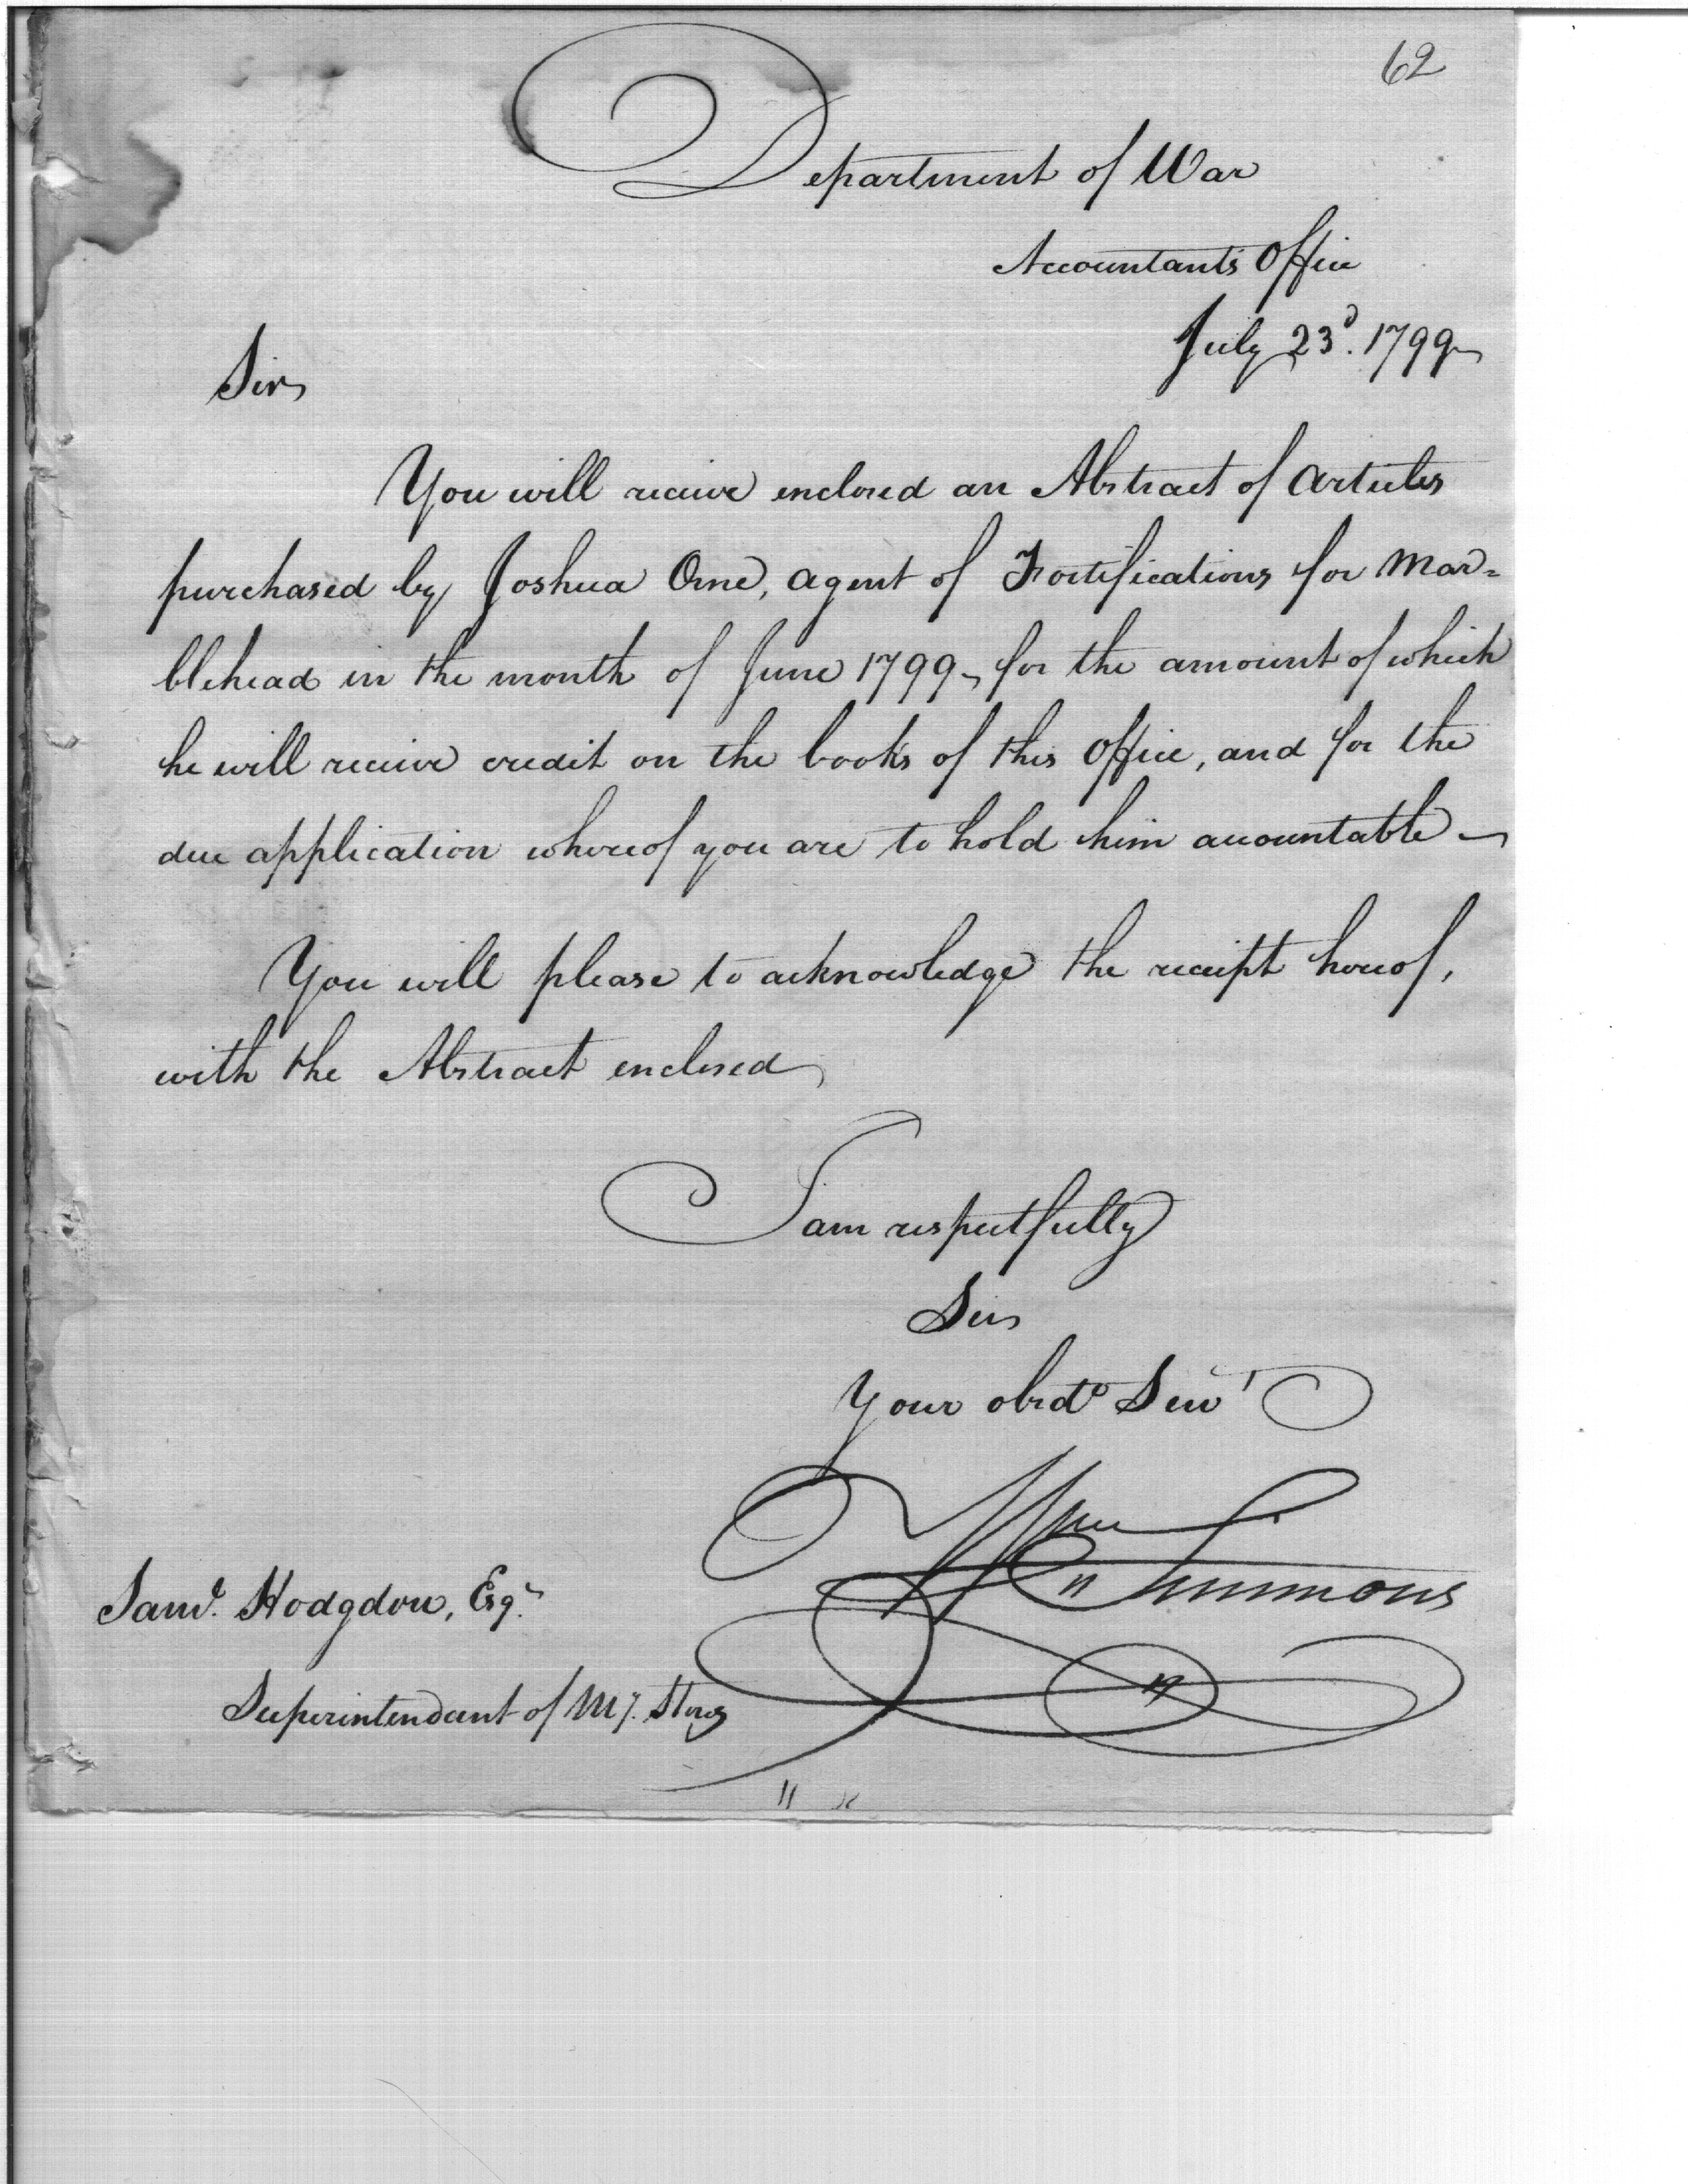 62
Department of War
Accountants Office
July 23d. 1799
Sir
You will receive enclosed an Abstract of Articles
purchased by Joshua Orne, agent of Fortifications for Mar=
blehead in the month of June 1799, for the amount of which
he will receive credit on the books of this Office, and for the
due application whereof you are to hold him accountable —
You will please to acknowledge the receipt hereof,
with the Abstract enclosed
I am respectfully
Sir
Your obedt Servt
Wm Simmons
Saml. Hodgdon, Esqr.
Superintendant of My. Stores